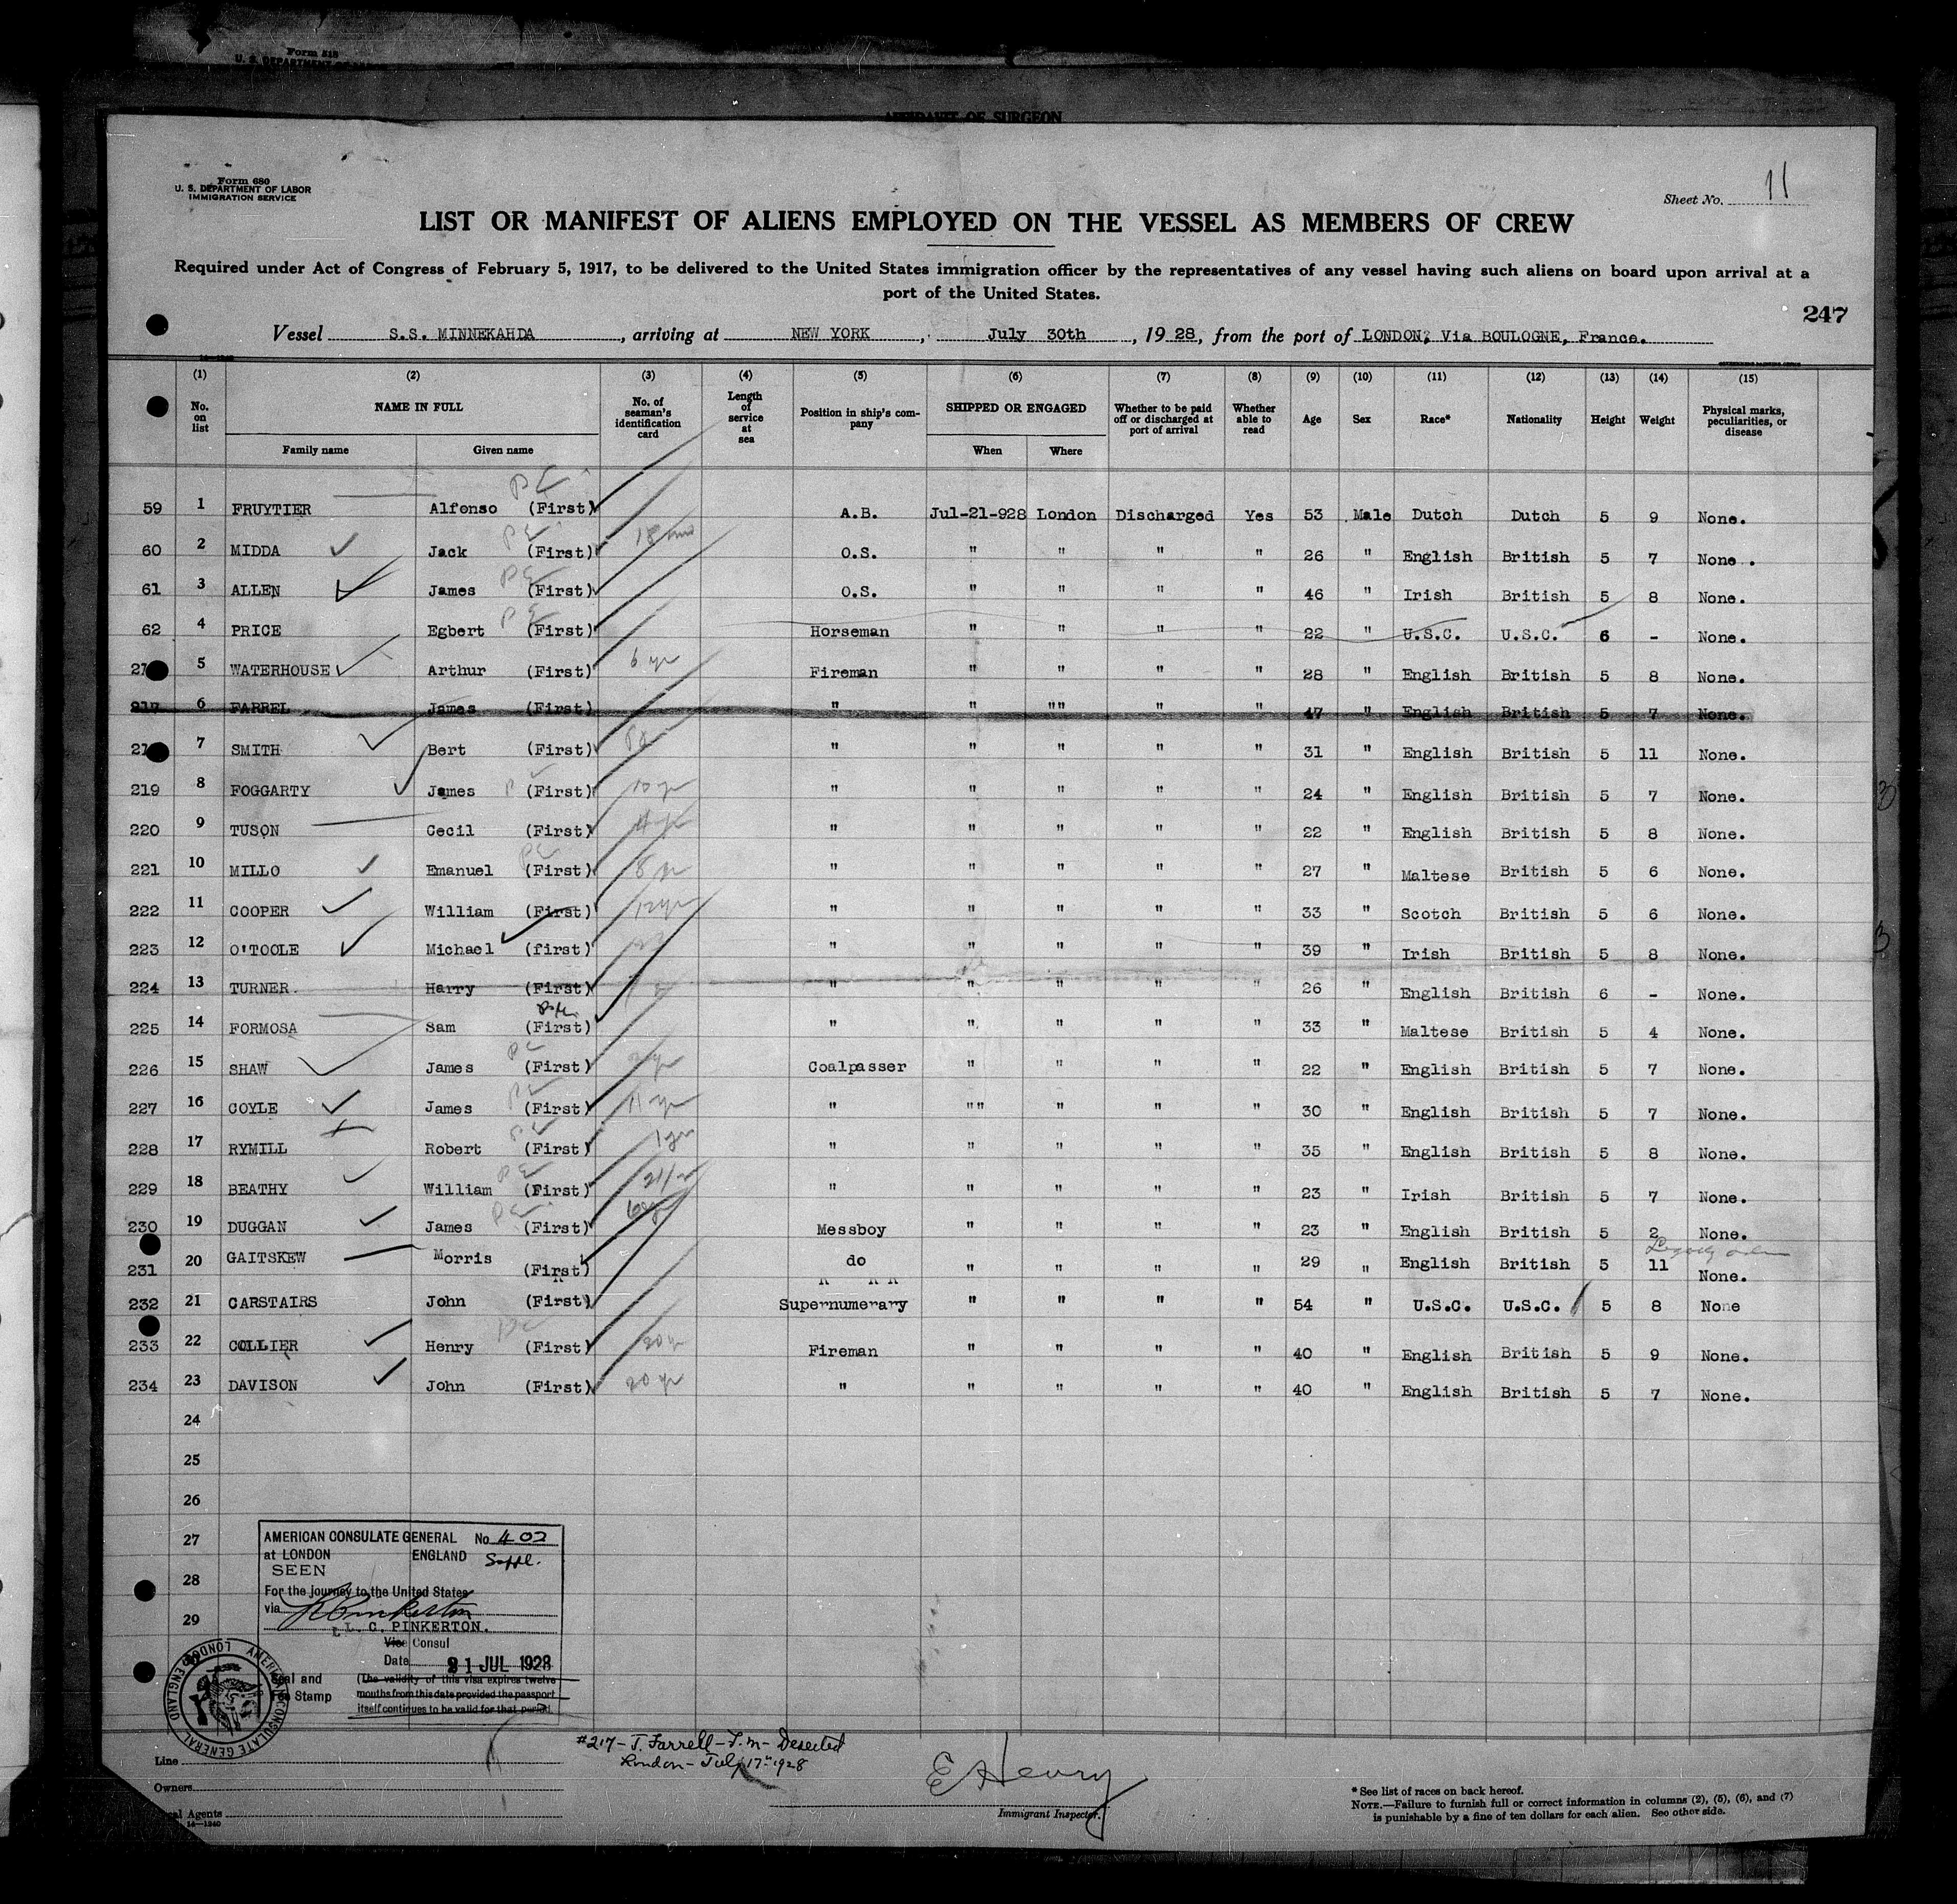 Form 515
U. S. DEPARTMENT OF LABOR
AFFIDAVIT OF SURGEON
Form 680
U. S. DEPARTMENT OF LABOR
IMMIGRATION SERVICE
Sheet No. 11
LIST OR MANIFEST OF ALIENS EMPLOYED ON THE VESSEL AS MEMBERS OF CREW
Required under Act of Congress of February 5, 1917, to be delivered to the United States immigration officer by the representatives of any vessel having such aliens on board upon arrival at a
port of the United States.
247
Vessel S.S. MINNEKAHDA, arriving at NEW YORK, July 30th, 1928, from the port of LONDON; Via BOULOGNE, France.
(1) (2) (3) (4) (5) (6) (7) (8) (9) (10) (11) (12) (13) (14) (15)
No. on list NAME IN FULL Family name Given name No. of seaman's identification card Length of service at sea Position in ship's company SHIPPED OR ENGAGED When Where Whether to be paid off or discharged at port of arrival Whether able to read Age Sex Race* Nationality Height Weight Physical marks, peculiarities, or disease
59 1 FRUYTIER Alfonso (First) A.B. Jul-21-928 London Discharged Yes 53 Male Dutch Dutch 5 9 None.
60 2 MIDDA Jack (First) O.S. " " " " 26 " English British 5 7 None.
61 3 ALLEN James (First) O.S. " " " " 46 " Irish British 5 8 None.
62 4 PRICE Egbert (First) Horseman " " " " 22 " U.S.C. U.S.C. 6 - None.
5 WATERHOUSE Arthur (First) 6 yr Fireman " " " " 28 " English British 5 8 None.
217 6 FARREL James (First) " " "" " " 47 " English British 5 7 None.
7 SMITH Bert (First) " " " " " 31 " English British 5 11 None.
219 8 FOGGARTY James (First) 10 yr " " " " " 24 " English British 5 7 None.
220 9 TUSON Cecil (First) " " " " " 22 " English British 5 8 None.
221 10 MILLO Emanuel (First) 8 yr " " " " " 27 " Maltese British 5 6 None.
222 11 COOPER William (First) 12 yr " " " " " 33 " Scotch British 5 6 None.
223 12 O'TOOLE Michael (first) " " " " " 39 " Irish British 5 8 None.
224 13 TURNER. Harry (First) " " " " " 26 " English British 6 - None.
225 14 FORMOSA Sam (First) " " " " " 33 " Maltese British 5 4 None.
226 15 SHAW James (First) Coalpasser " " " " 22 " English British 5 7 None.
227 16 COYLE James (First) 11 yr " "" " " " 30 " English British 5 7 None.
228 17 RYMILL Robert (First) 1 yr " " " " " 35 " English British 5 8 None.
229 18 BEATHY William (First) " " " " " 23 " Irish British 5 7 None.
230 19 DUGGAN James (First) Messboy " " " " 23 " English British 5 2 None.
231 20 GAITSKEW Morris (First) do " " " " 29 " English British 5 11 None.
232 21 CARSTAIRS John (First) Supernumerary " " " " 54 " U.S.C. U.S.C. 5 8 None
233 22 COLLIER Henry (First) 20 yr Fireman " " " " 40 " English British 5 9 None.
234 23 DAVISON John (First) 20 yr " " " " " 40 " English British 5 7 None.
24
25
26
27
28
29
AMERICAN CONSULATE GENERAL No 402
at LONDON ENGLAND Suppl.
SEEN
For the journey to the United States
via
L. C. PINKERTON.
Vice Consul
Date 21 JUL 1928
Seal and
Fee Stamp
(The validity of this visa expires twelve
months from this date provided the passport
itself continues to be valid for that period.
AMERICAN CONSULATE GENERAL LONDON ENGLAND
#217 - J. Farrell - F.m - Deserted
London - July 17th 1928
E Henry
Immigrant Inspector.
Line
Owners
Local Agents
14-1240
* See list of races on back hereof.
NOTE.—Failure to furnish full or correct information in columns (2), (5), (6), and (7)
is punishable by a fine of ten dollars for each alien. See other side.